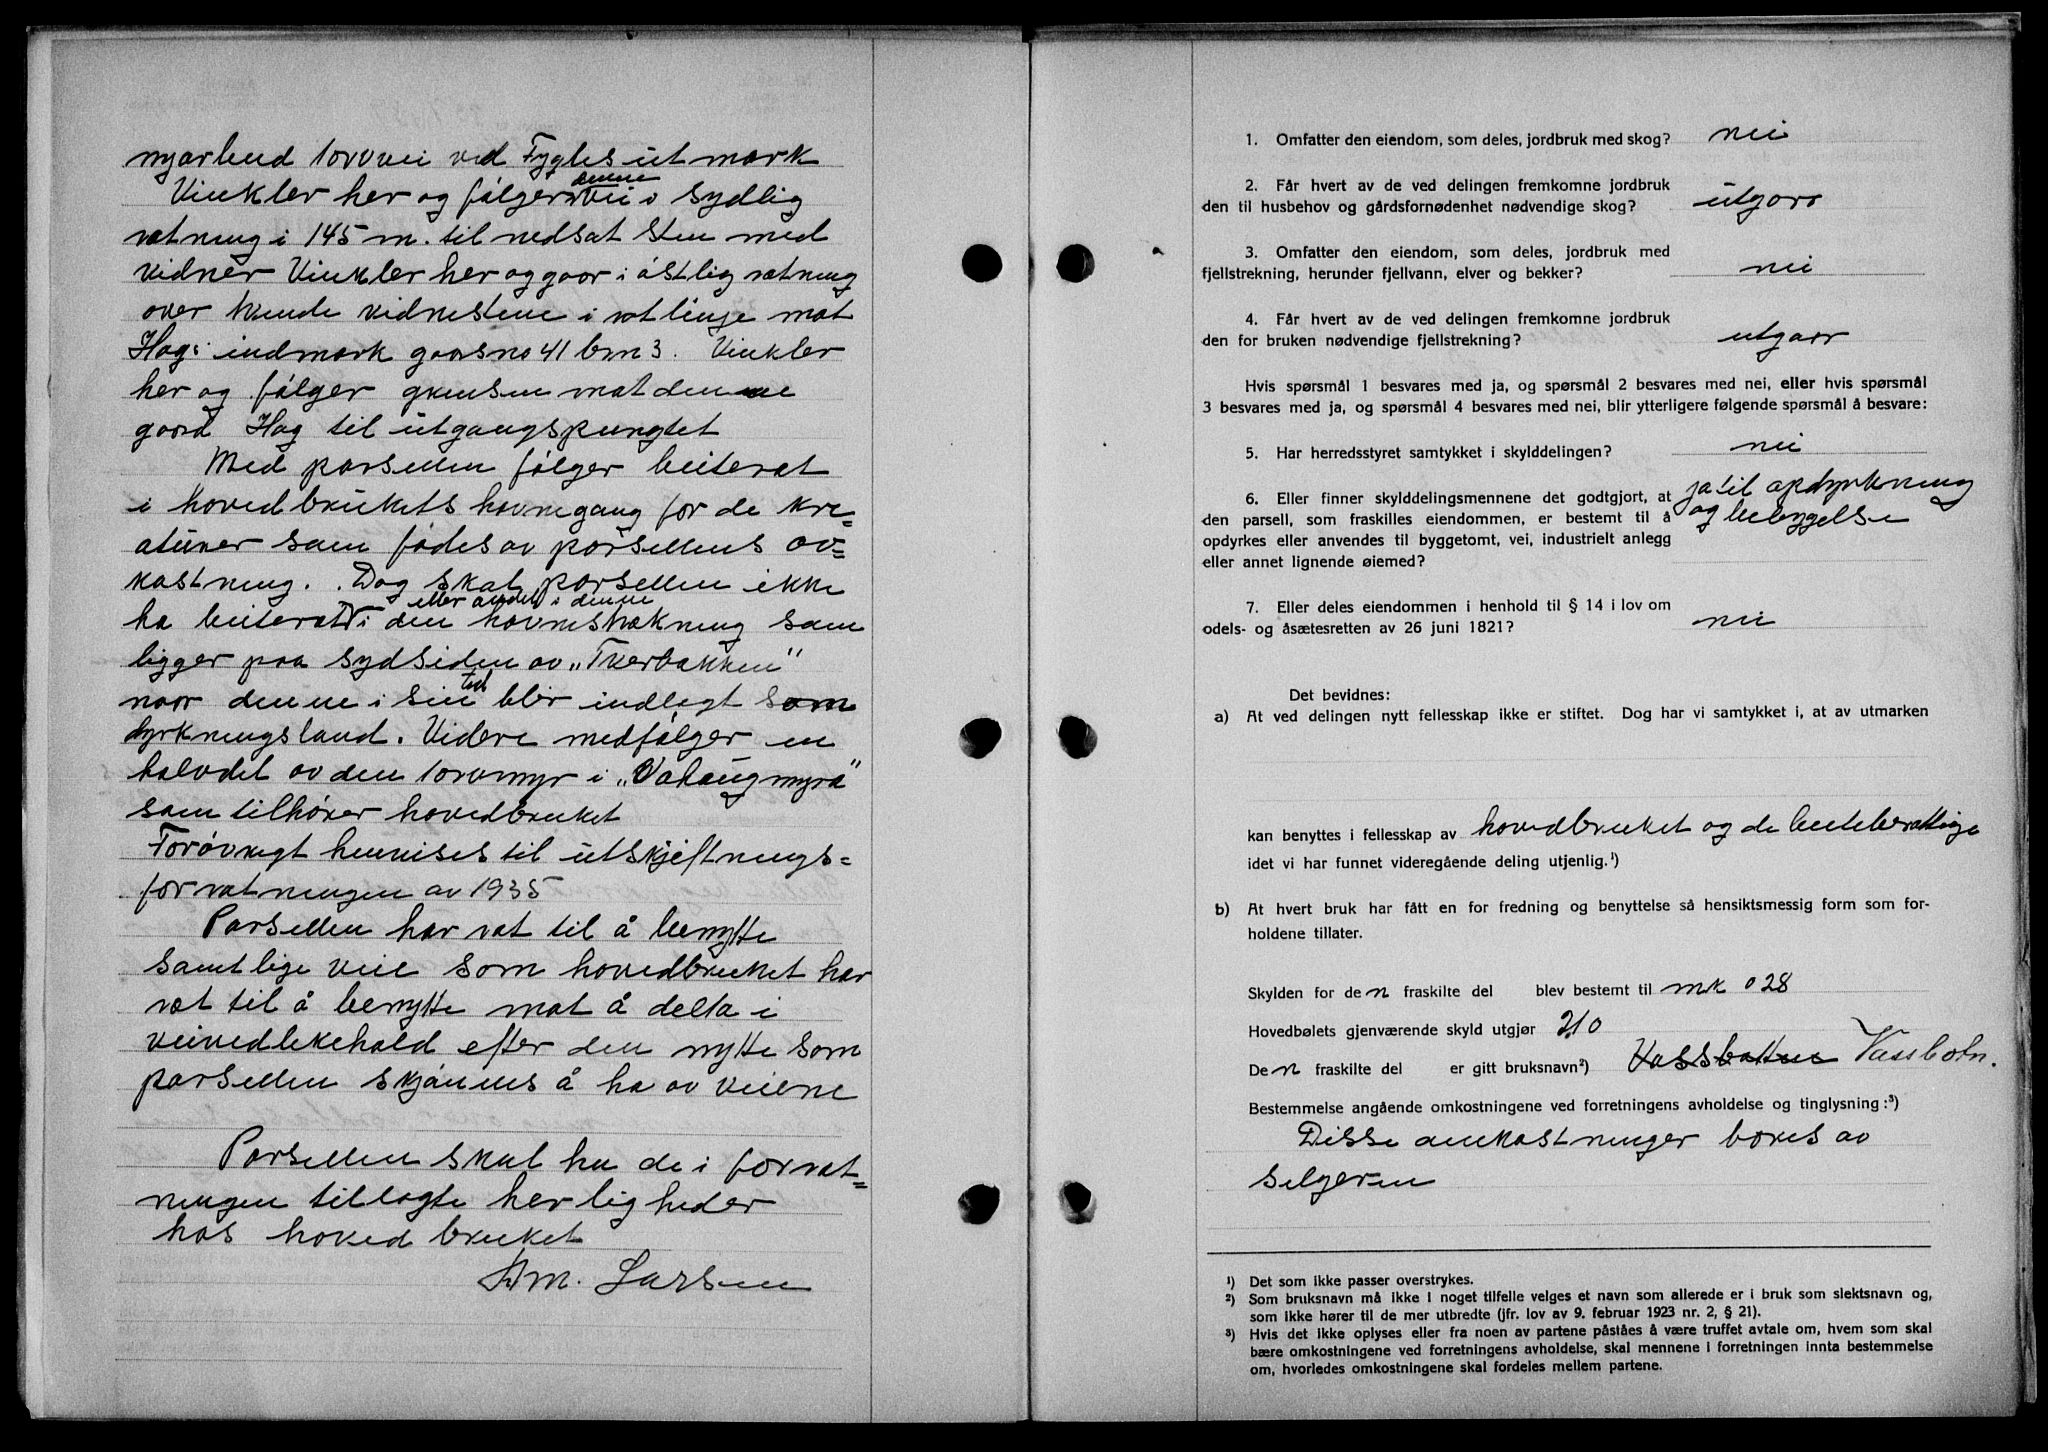 nyarbud torvvei ved Fygles utmark
Vinkler her og følger denne vei i sydlig
retning i 145 m. til nedsat sten med
vidner Vinkler her og gaar i østlig retning
over tvende vidnestene i ret linje mot
Hag: indmark gaarsno 41 brn 3. Vinkler
her og følger grensen mot denne
gaard Hag til utgangspungtet
Med parsellen følger beiteret
i hovedbrukets havnegang for de kre=
aturer som fødes av parsellens av=
kastning. Dog skal parsellen ikke
ha beiteret eller andel i denne i den havnestrekning som
ligger paa sydsiden av "Tverbakken"
naar denne i sin tid blir indlagt som
dyrkningsland. Videre medfølger en
halvdel av den torvmyr i "Vahaugmyra"
som tilhører hovedbruket
Forøvrigt henvises til utskjiftnings=
forretningen av 1935
Parsellen har ret til å benytte
samtlige veie som hovedbruket har
ret til å benytte mot å delta i
veivedlikehald efter den nytte som
parsellen skjønnes å ha av veiene
Parsellen skal ha de i forret=
ningen tillagte herligheder
hos hovedbruket
Am. Larsen
1. Omfatter den eiendom, som deles, jordbruk med skog? nei
2. Får hvert av de ved delingen fremkomne jordbruk
den til husbehov og gårdsfornødenhet nødvendige skog? utgaar
3. Omfatter den eiendom, som deles, jordbruk med
fjellstrekning, herunder fjellvann, elver og bekker? nei
4. Får hvert av de ved delingen fremkomne jordbruk
den for bruken nødvendige fjellstrekning? utgaar
Hvis spørsmål 1 besvares med ja, og spørsmål 2 besvares med nei, eller hvis spørsmål
3 besvares med ja, og spørsmål 4 besvares med nei, blir ytterligere følgende spørsmål å besvare:
5. Har herredsstyret samtykket i skylddelingen? nei
6. Eller finner skylddelingsmennene det godtgjort, at ja til opdyrkning
den parsell, som fraskilles eiendommen, er bestemt til å og bebyggelse
opdyrkes eller anvendes til byggetomt, vei, industrielt anlegg
eller annet lignende øiemed?
7. Eller deles eiendommen i henhold til § 14 i lov om
odels- og åsætesretten av 26 juni 1821? nei
Det bevidnes:
a) At ved delingen nytt fellesskap ikke er stiftet. Dog har vi samtykket i, at av utmarken
kan benyttes i fellesskap av hovedbruket og de beiteberettige
idet vi har funnet videregående deling utjenlig.¹)
b) At hvert bruk har fått en for fredning og benyttelse så hensiktsmessig form som for-
holdene tillater.
Skylden for den fraskilte del blev bestemt til mk 0 28
Hovedbølets gjenværende skyld utgjør 2 10
Den fraskilte del er gitt bruksnavn²) Vassbotten Vassbotn.
Bestemmelse angående omkostningene ved forretningens avholdelse og tinglysning:³)
Disse omkostninger bæres av
selgeren
¹) Det som ikke passer overstrykes.
²) Som bruksnavn må ikke i noget tilfelle velges et navn som allerede er i bruk som slektsnavn og,
som ikke hører til de mer utbredte (jfr. lov av 9. februar 1923 nr. 2, § 21).
³) Hvis det ikke oplyses eller fra noen av partene påståes å være truffet avtale om, hvem som skal
bære omkostningene ved forretningens avholdelse, skal mennene i forretningen innta bestemmelse
om, hvorledes omkostningene skal fordeles mellem partene.